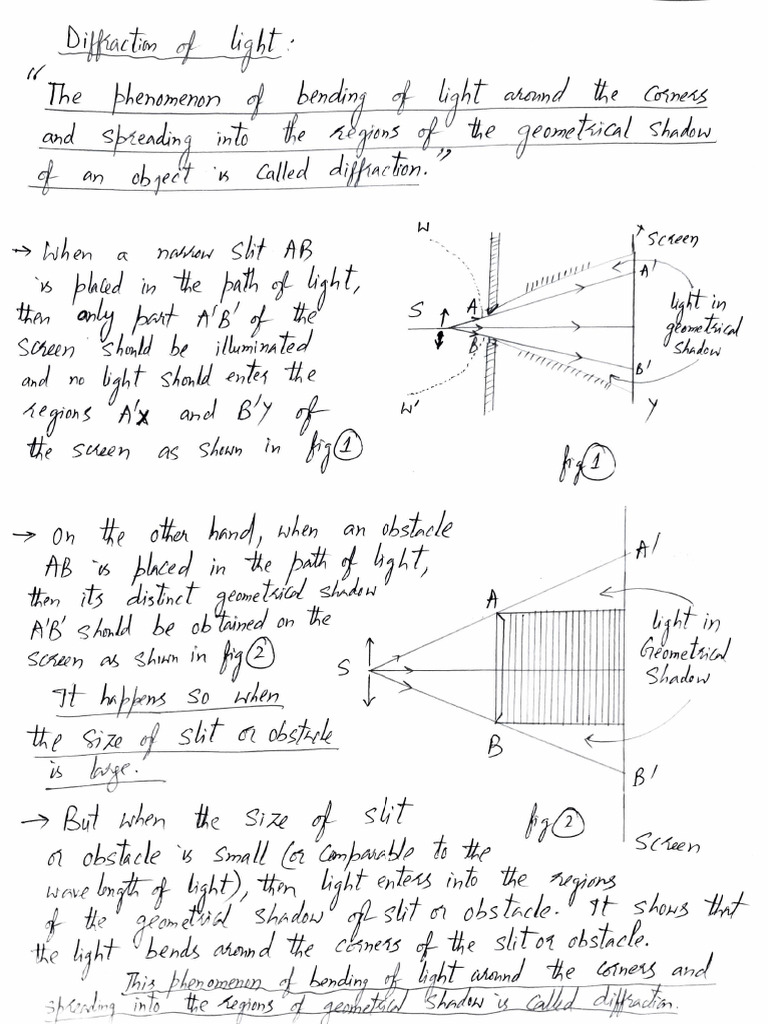 Diffraction of light:
"The phenomenon of bending of light around the corners
and spreading into the regions of the geometrical shadow
of an object is called diffraction."
→ When a narrow slit AB
is placed in the path of light,
then only part A'B' of the
screen should be illuminated
and no light should enter the
regions A'X and B'Y of
the screen as shown in fig 1
W
S
A
B
W'
X
Screen
A'
light in
geometrical
shadow
B'
Y
fig 1
→ On the other hand, when an obstacle
AB is placed in the path of light,
then its distinct geometrical shadow
A'B' should be obtained on the
screen as shown in fig 2
It happens so when
the size of slit or obstacle
is large.
S
A
B
A'
light in
Geometrical
Shadow
B'
fig 2
Screen
→ But when the size of slit
or obstacle is small (or comparable to the
wave length of light), then light enters into the regions
of the geometrical shadow of slit or obstacle. It shows that
the light bends around the corners of the slit or obstacle.
This phenomenon of bending of light around the corners and
spreading into the regions of geometrical shadow is called diffraction.